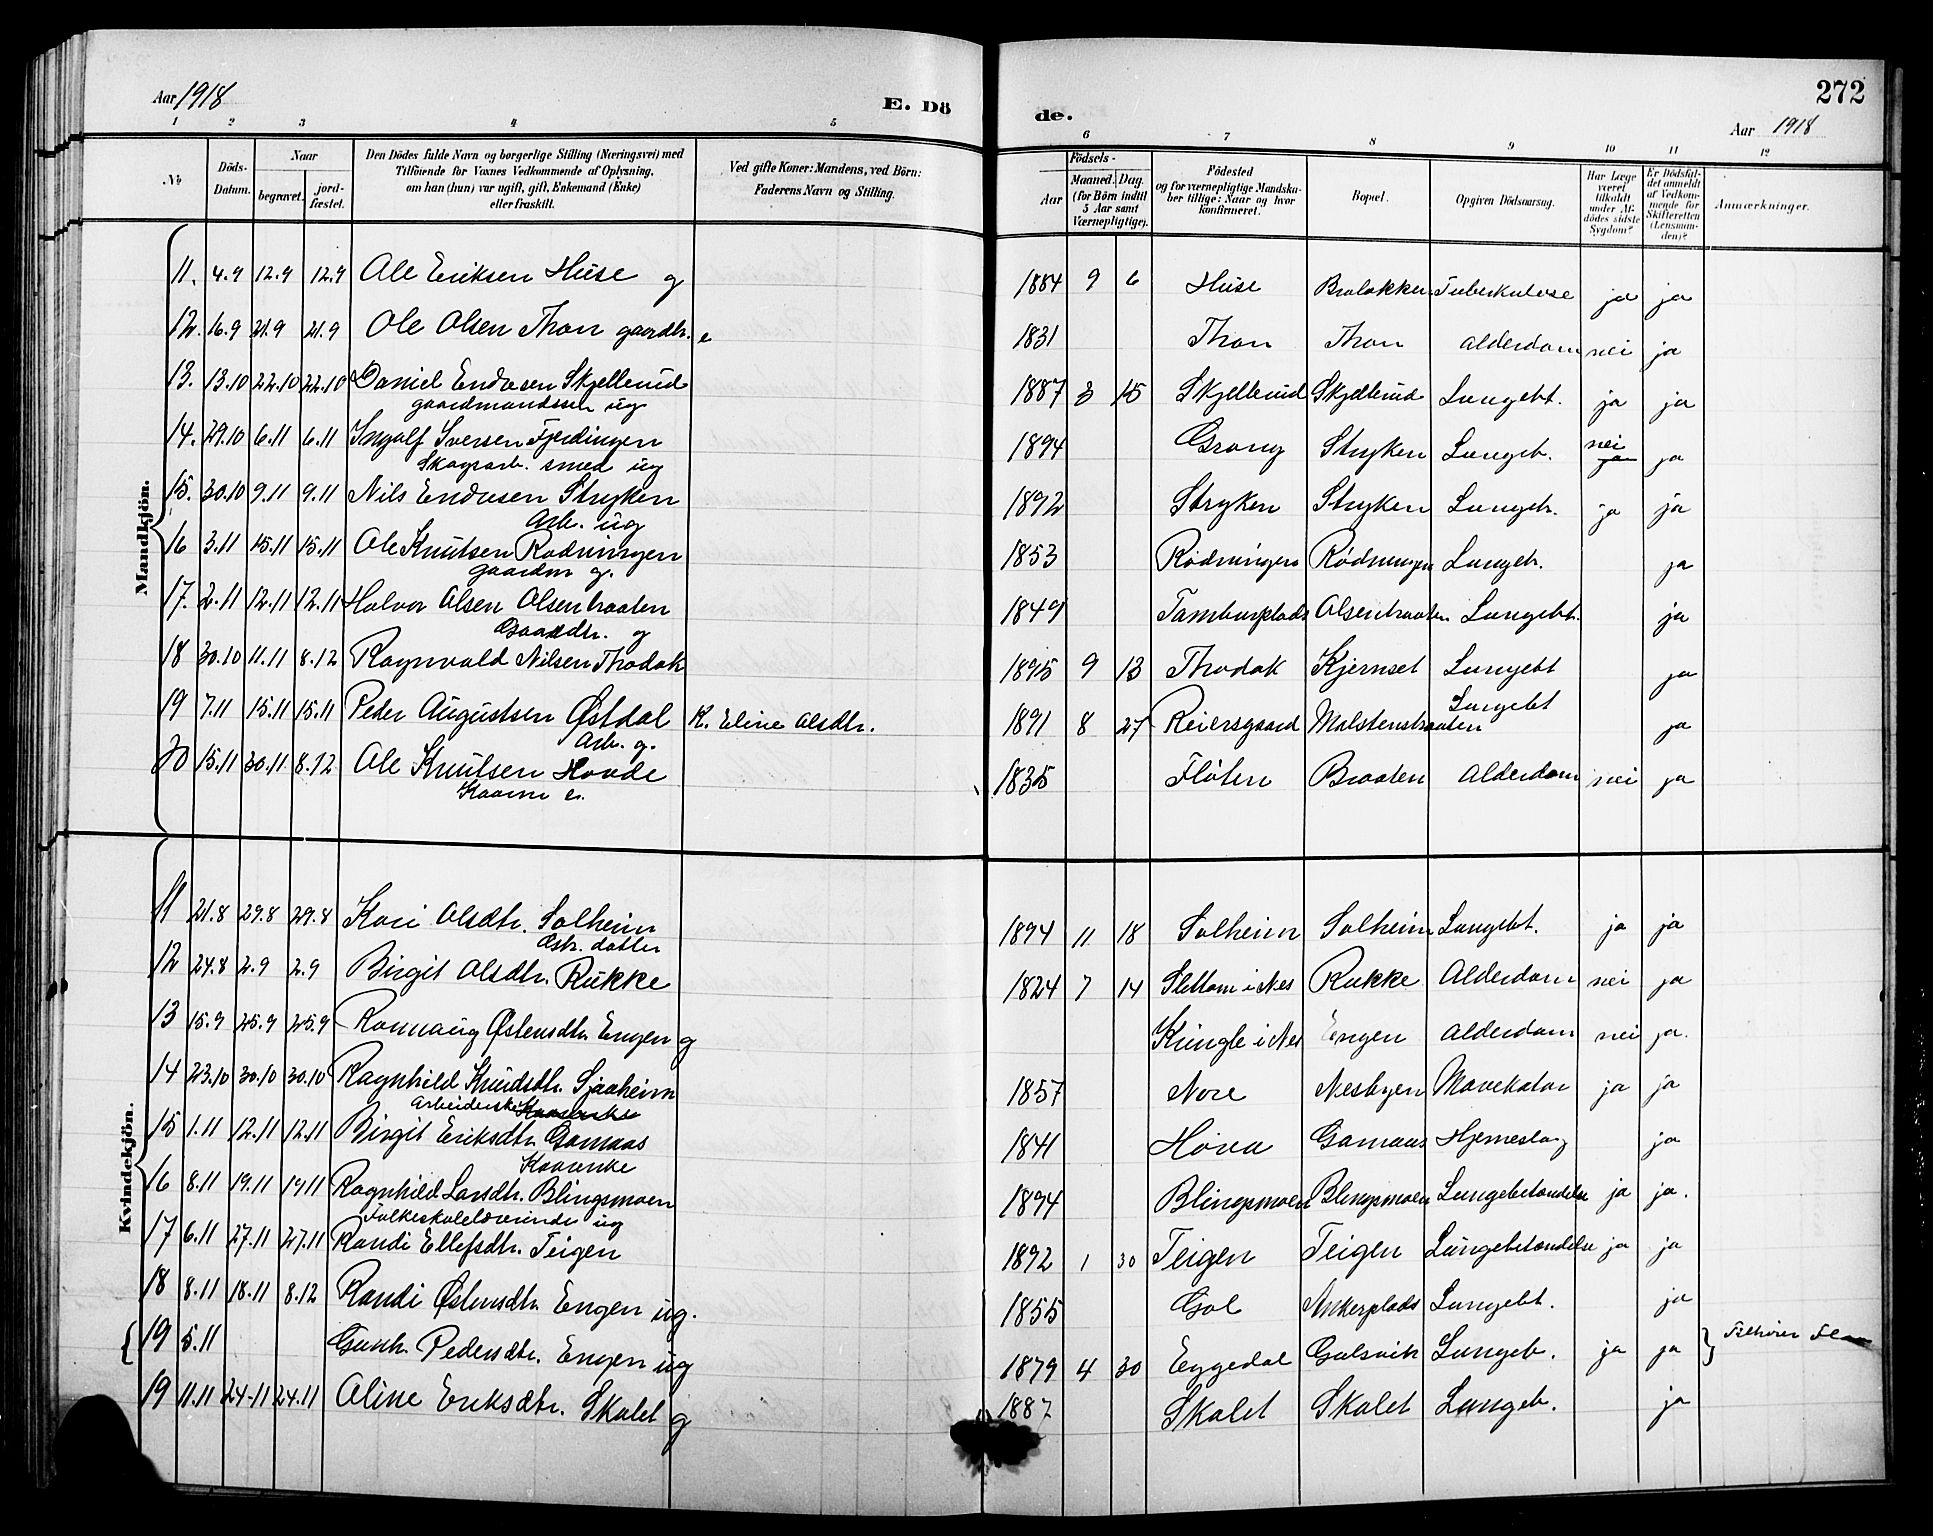 Aar 1918 E. Dö de. 272
Aar 1918
1 2 3 4 5 6 7 8 9 10 11 12
No
Döds-Datum.
Naar
begravet.
jord-fæstet.
Den Dödes fulde Navn og borgerlige Stilling (Næringsvei) med
Tilföiende för Voxnes Vedkommende af Oplysning,
om han (hun) var ugift, gift, Enkemand (Enke)
eller fraskilt.
Ved gifte Koner: Mandens, ved Börn:
Faderens Navn og Stilling.
Födsels-
Aar
Maaned. Dag.
(for Börn indtil
5 Aar samt
Værnepligtige).
Födested
og for værnepligtige Mandska-
ber tillige: Naar og hvor
konfirmeret.
Bopæl.
Opgiven Dödsaarsag.
Har Læge
været
tilkaldt
under Af-
dödes sidste
Sygdom?
Er Dödsfal-
det anmeldt
af Vedkom-
mende for
Skifteretten
(Lensman-
den)?
Anmærkninger.
Mandkjön.
11. 4.9 12.9 12.9 Ole Eriksen Huse g 1884 9 6 Huse Braløkken Tuberkulose ja ja
12. 16.9 21.9 21.9 Ole Olsen Thon gaardbr. e 1831 Thon Thon Alderdom nei ja
13. 13.10 22.10 22.10 Daniel Endresen Skjellerud 1887 3 15 Skjellerud Skjellerud Lungebt. ja ja
gaardmandssøn ug
14. 29.10 6.11 6.11 Ingolf Iversen Fjerdingen 1894 Grong Stryken Lungeb. nei ja ja
Skogsarb. smed ug
15. 30.10 9.11 9.11 Nils Endresen Stryken 1892 Stryken Stryken Lungeb. ja ja
Arb. ug
16 3.11 15.11 15.11 Ole Knutsen Rødningen 1853 Rødningen Rødningen Lungeb. ja
gaardm g.
17. 2.11 12.11 12.11 Halvor Olsen Olsenbraaten 1849 Tamburplads Olsenbraaten Lungebt. ja
Gaardbr. g
18 30.10 11.11 8.12 Ragnvald Nilsen Thodok 1895 9 13 Thodok Kjernset Lungebt ja
19 7.11 15.11 15.11 Peder Augustsen Østdal K. Eline Olsdtr. 1891 8 27 Reiersgaard Malstensbraaten Lungebt ja
Arb. g.
20 15.11 30.11 8.12 Ole Knutsen Hovde 1835 Fløten Braaten Alderdom nei ja
Kaarm e.
Kvindekjön.
11 21.8 29.8 29.8 Kari Olsdtr. Solheim 1894 11 18 Solheim Solheim Lungebt. ja ja
datter
12 24.8 2.9 2.9 Birgit Olsdtr. Rukke 1824 7 14 Slettom i Nes Rukke Alderdom nei ja
13 15.9 25.9 25.9 Rannaug Østensdtr. Engen g Kringle i Nes Engen Alderdom nei ja.
14 23.10 30.10 30.10 Ragnhild Knudsdtr. Sjaaheim 1857 Nore Nesbyen Mavekatar ja ja
Arbeiderske
15 1.11 12.11 12.11 Birgit Eriksdtr. Gamaas 1841 Hova Gamaas Hjerneslag ja
Kaarenke
16 8.11 19.11 19.11 Ragnhild Larsdtr. Blingsmoen 1894 Blingsmoen Blingsmoen Lungebetændelse ja ja.
Folkeskolelærerinde ug
17 6.11 27.11 27.11 Randi Ellefsdtr. Teigen 1892 1 30 Teigen Teigen Lungebetændelse ja ja
18 8.11 18.11 8.12 Randi Østensdtr. Engen ug. 1855 Gol Ankerplads Lungebt. ja
19 5.11 Gunh. Pedersdtr. Engen ug 1879 4 30 Eggedal Gulsvik Lungeb. ja ja Tilhører
19 11.11 24.11 24.11 Oline Eriksdtr. Skalet g 1887 Skalet Skalet Lungeb. ja